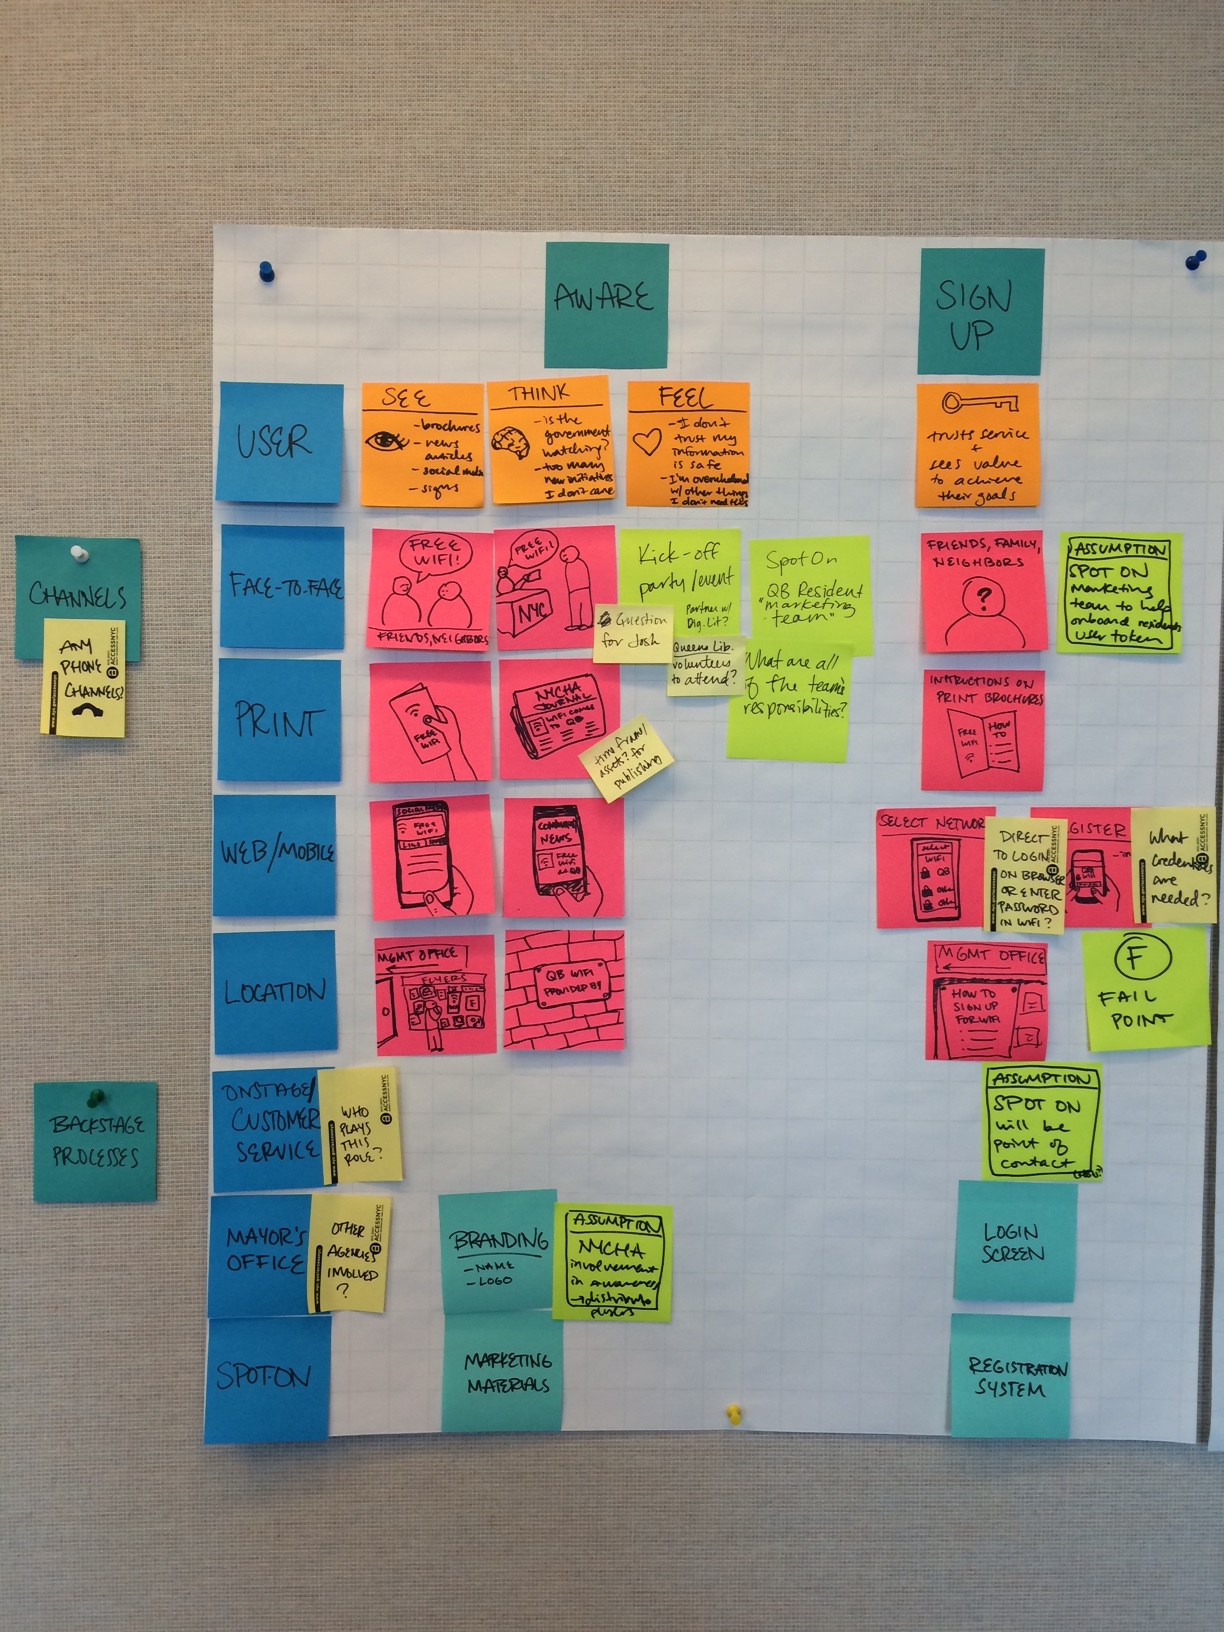 AWARE
SIGN
UP
USER
SEE
- brochures
- news
articles
- social media
- signs
THINK
- is the
government
watching?
- too many
new initiatives
I don't care
FEEL
- I don't
trust my
information
is safe
- I'm overwhelmed
w/ other things
I don't need this
trusts service
+
sees value
to achieve
their goals
CHANNELS
ANY
PHONE
CHANNELS?
ACCESSNYC
FACE-TO-FACE
FREE
WIFI!
FRIENDS, NEIGHBORS
FREE WIFI!
NYC
Kick-off
party/event
Partner w/
Dig. Lit?
Question
for Josh
Queens Lib.
volunteers
to attend?
SpotOn
QB Resident
"marketing
team"
What are all
of the team's
responsibilities?
FRIENDS, FAMILY,
NEIGHBORS
?
ASSUMPTION
SPOT ON
marketing
team to help
onboard residents
user token
PRINT
FREE
WIFI
NYCHA
JOURNAL
WIFI COMES
TO QB
time frame/
asset? for
publishing
INSTRUCTIONS ON
PRINT BROCHURES
FREE
WIFI
HOW
TO
WEB/MOBILE
FREE
WIFI
COMMUNITY
NEWS
FREE
WIFI
QB
SELECT NETWOR
SELECT
WIFI
QB
DIRECT
TO LOGIN
ON BROWSER
OR ENTER
PASSWORD
IN WIFI?
ACCESSNYC
GISTER
What
credentials
are
needed?
ACCESSNYC
LOCATION
MGMT OFFICE
FLYERS
QB WIFI
PROVIDED BY
MGMT OFFICE
HOW TO
SIGN UP
FOR WIFI
F
FAIL
POINT
BACKSTAGE
PROCESSES
ONSTAGE/
CUSTOMER
SERVICE
WHO
PLAYS
THIS
ROLE?
ACCESSNYC
ASSUMPTION
SPOT ON
will be
point of
contact
MAYOR'S
OFFICE
OTHER
AGENCIES
INVOLVED
?
ACCESSNYC
BRANDING
- NAME
- LOGO
ASSUMPTION
NYCHA
involvement
in awareness/
→ distribute
LOGIN
SCREEN
SPOT-ON
MARKETING
MATERIALS
REGISTRATION
SYSTEM